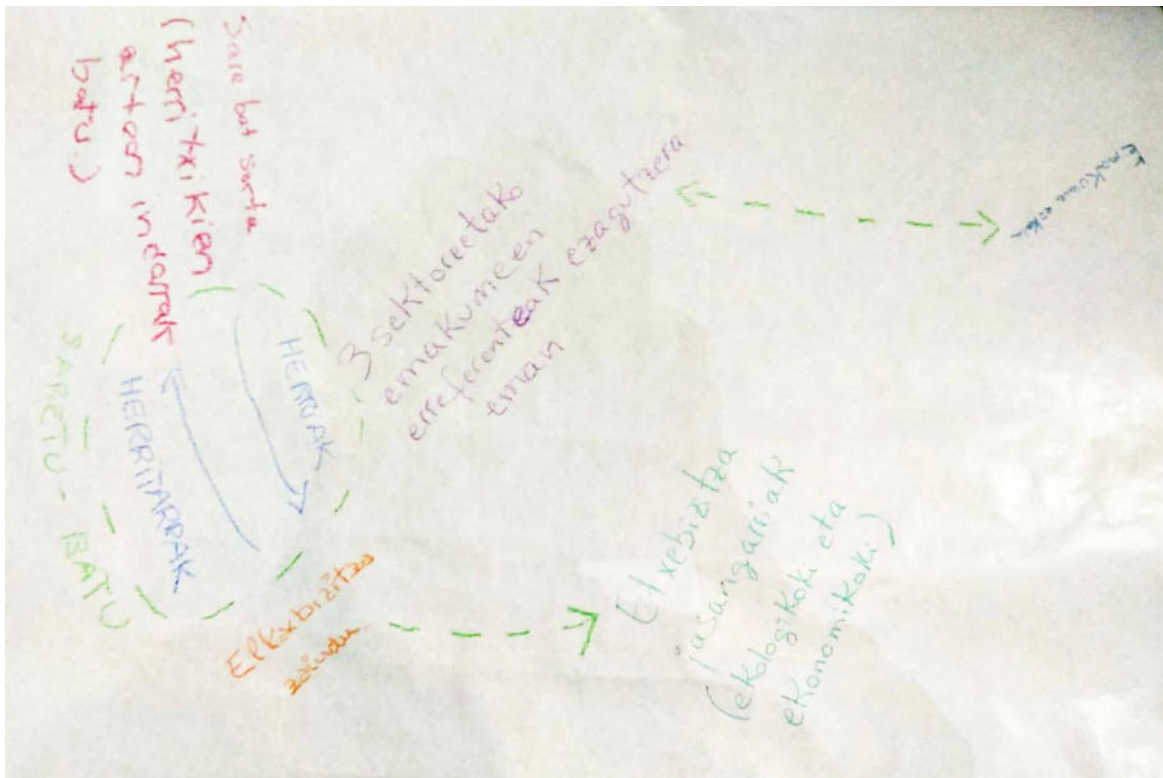 Sare bat sortu
(herri txikien
artean indarrak
batu.)
HERRIAK
HERRITARRAK
SARETU - BATU
3 sektoreetako
emakumeen
erreferenteak ezagutzera
eman
Elkarbizitza
zaindu
Etxebizitza
jasangarriak
(ekologikoki eta
ekonomikoki)